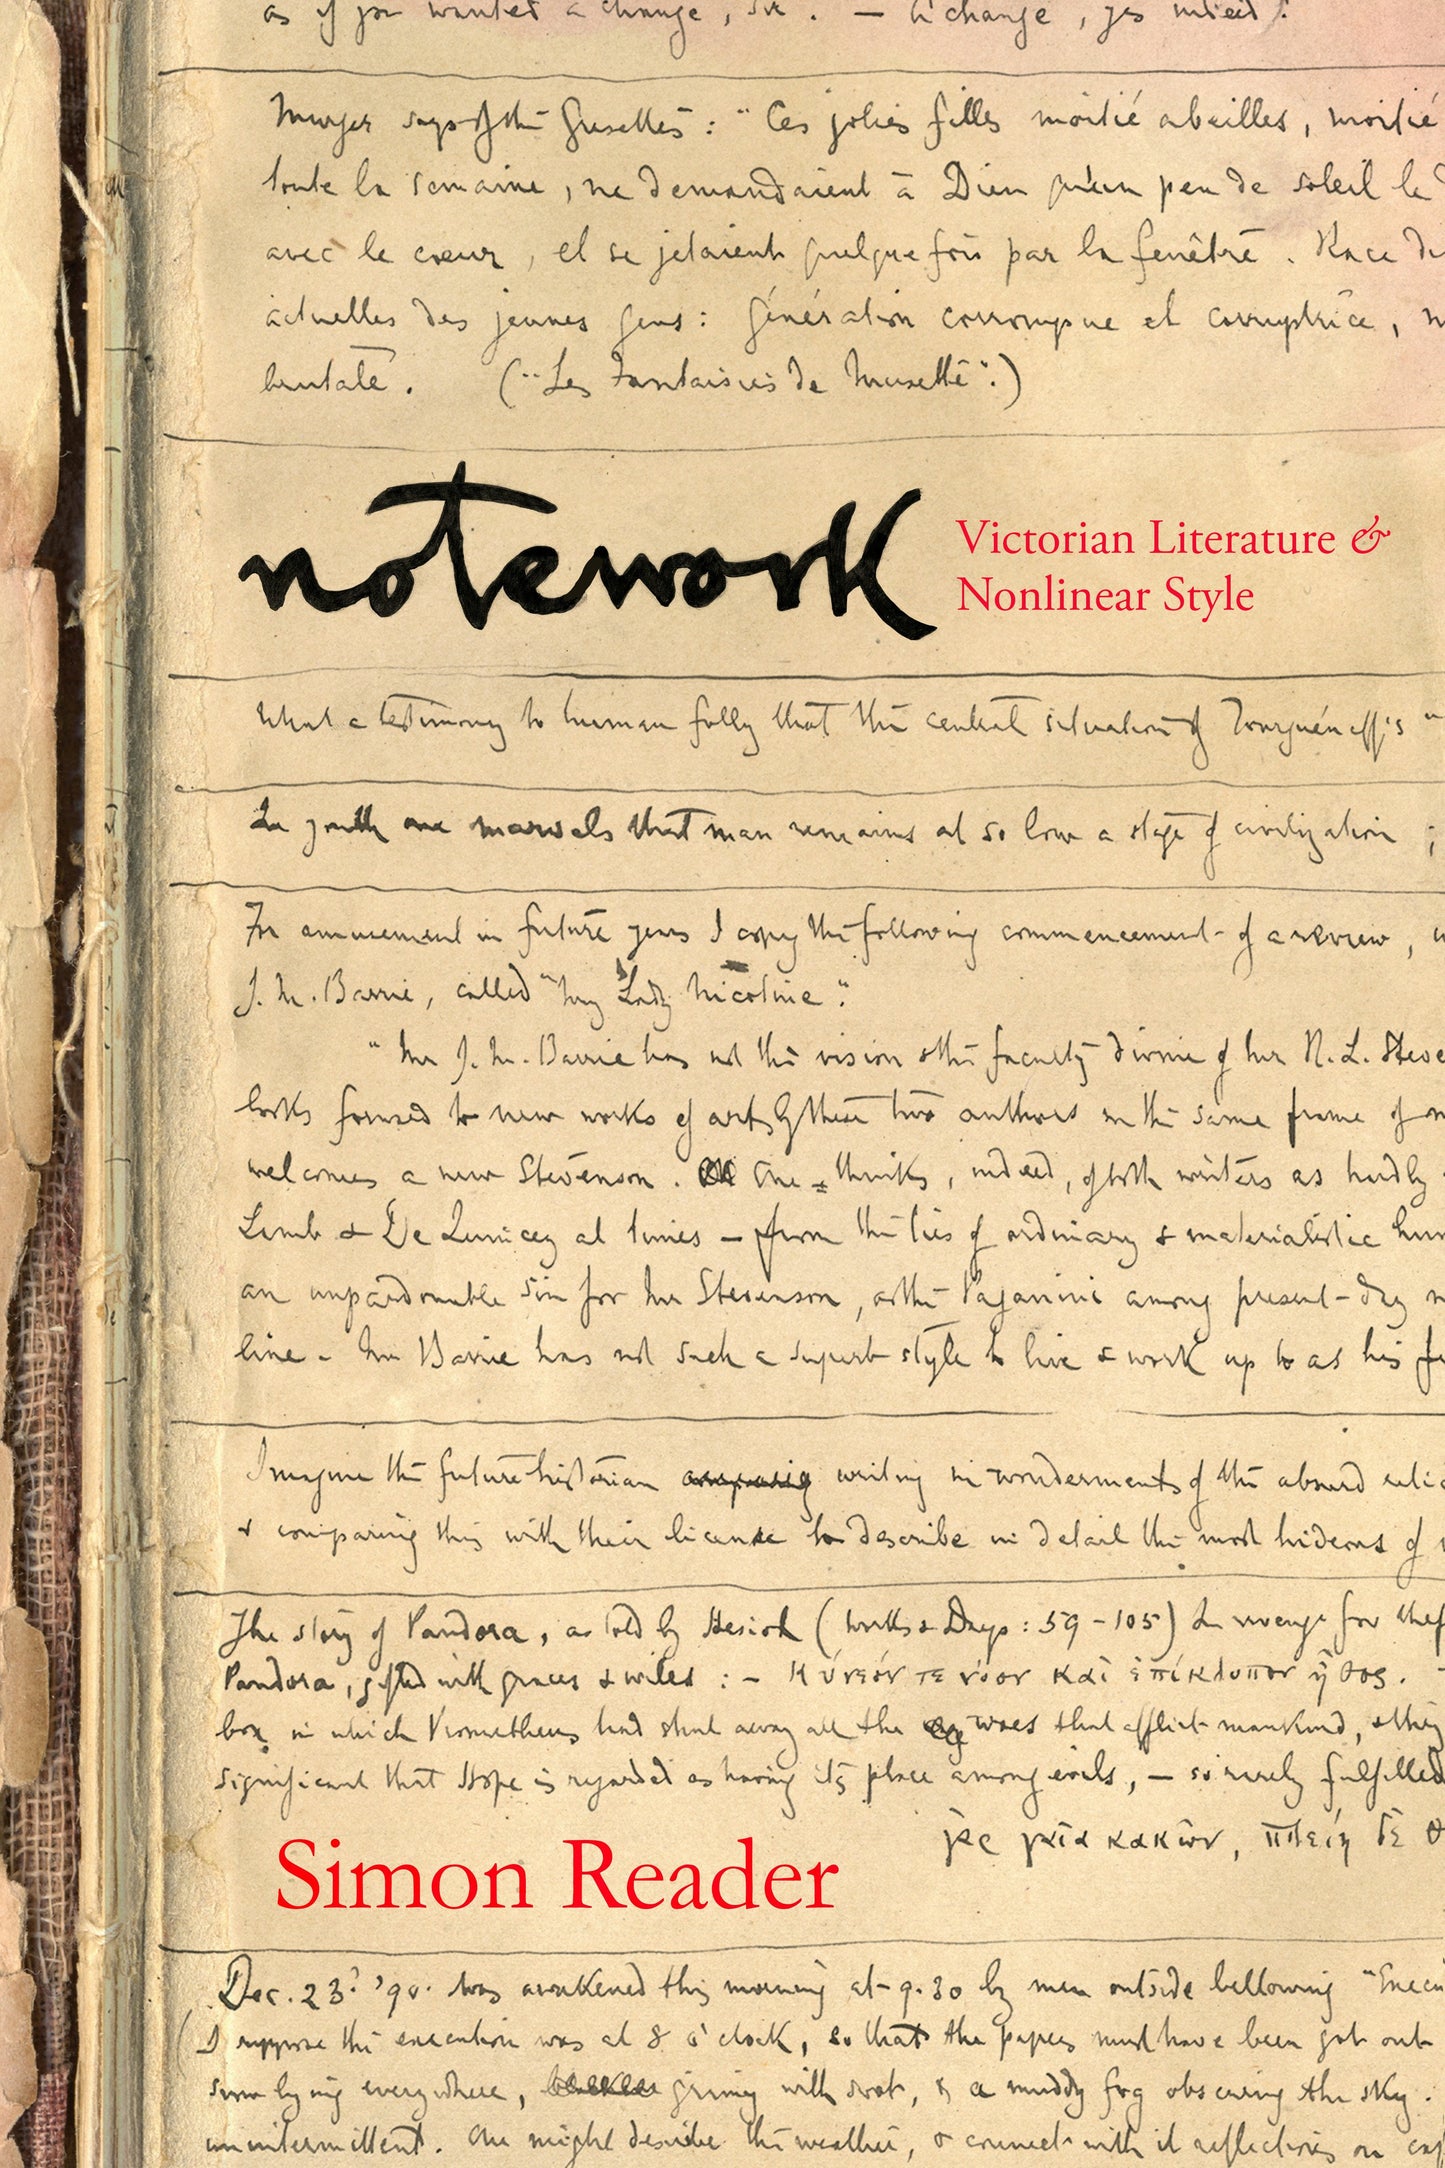 as if you wanted a change, sir. — A change, yes indeed!
Murger says of the Grisettes: "Ces jolies filles moitié abeilles, moitié
toute la semaine, ne demandaient à Dieu qu'un peu de soleil le
avec le cœur, et se jetaient quelquefois par la fenêtre. Race
actuelles des jeunes gens: génération corrompue et corruptrice,
brutale. ("Les Fantaisies de Musette".)
notework
Victorian Literature &
Nonlinear Style
What a testimony to human folly that the central situation of Tourguéneff's "
In youth one marvels that man remains at so low a stage of civilization;
For amusement in future years I copy the following commencement of a review,
J. M. Barrie, called "My Lady Nicotine":
"Mr J. M. Barrie has not the vision & the faculty divine of Mr R. L. Steve
looks forward to new works of art by these two authors in the same frame of
welcomes a new Stevenson. One thinks, indeed, of both writers as hardly
Lamb & De Quincey at times — from the ties of ordinary & materialistic
an unpardonable sin for Mr Stevenson, as the Paganini among present-day
line. Mr Barrie has not such a superb style to live & work up to as his
Imagine the future historian writing in wonderment of the absurd
& comparing this with their license to describe in detail the most hideous of
The story of Pandora, as told by Hesiod (Works & Days: 59-105) In revenge for
Pandora, gifted with graces & wiles: — κύνεόν τε νόον καὶ ἐπίκλοπον ἦθος. —
box in which Prometheus had shut away all the woes that afflict mankind,
significant that Hope is regarded as having its place among evils, — so rarely fulfilled
κακῶν, πλείη δὲ
Simon Reader
Dec. 23. '90. Was awakened this morning at 9.30 by men outside bellowing
I suppose the execution was at 8 o'clock, so that the papers must have been got out
Snow lying everywhere, grimy with soot, & a muddy fog obscuring the sky.
unintermittent. One might describe the weather, & connect with it reflections on